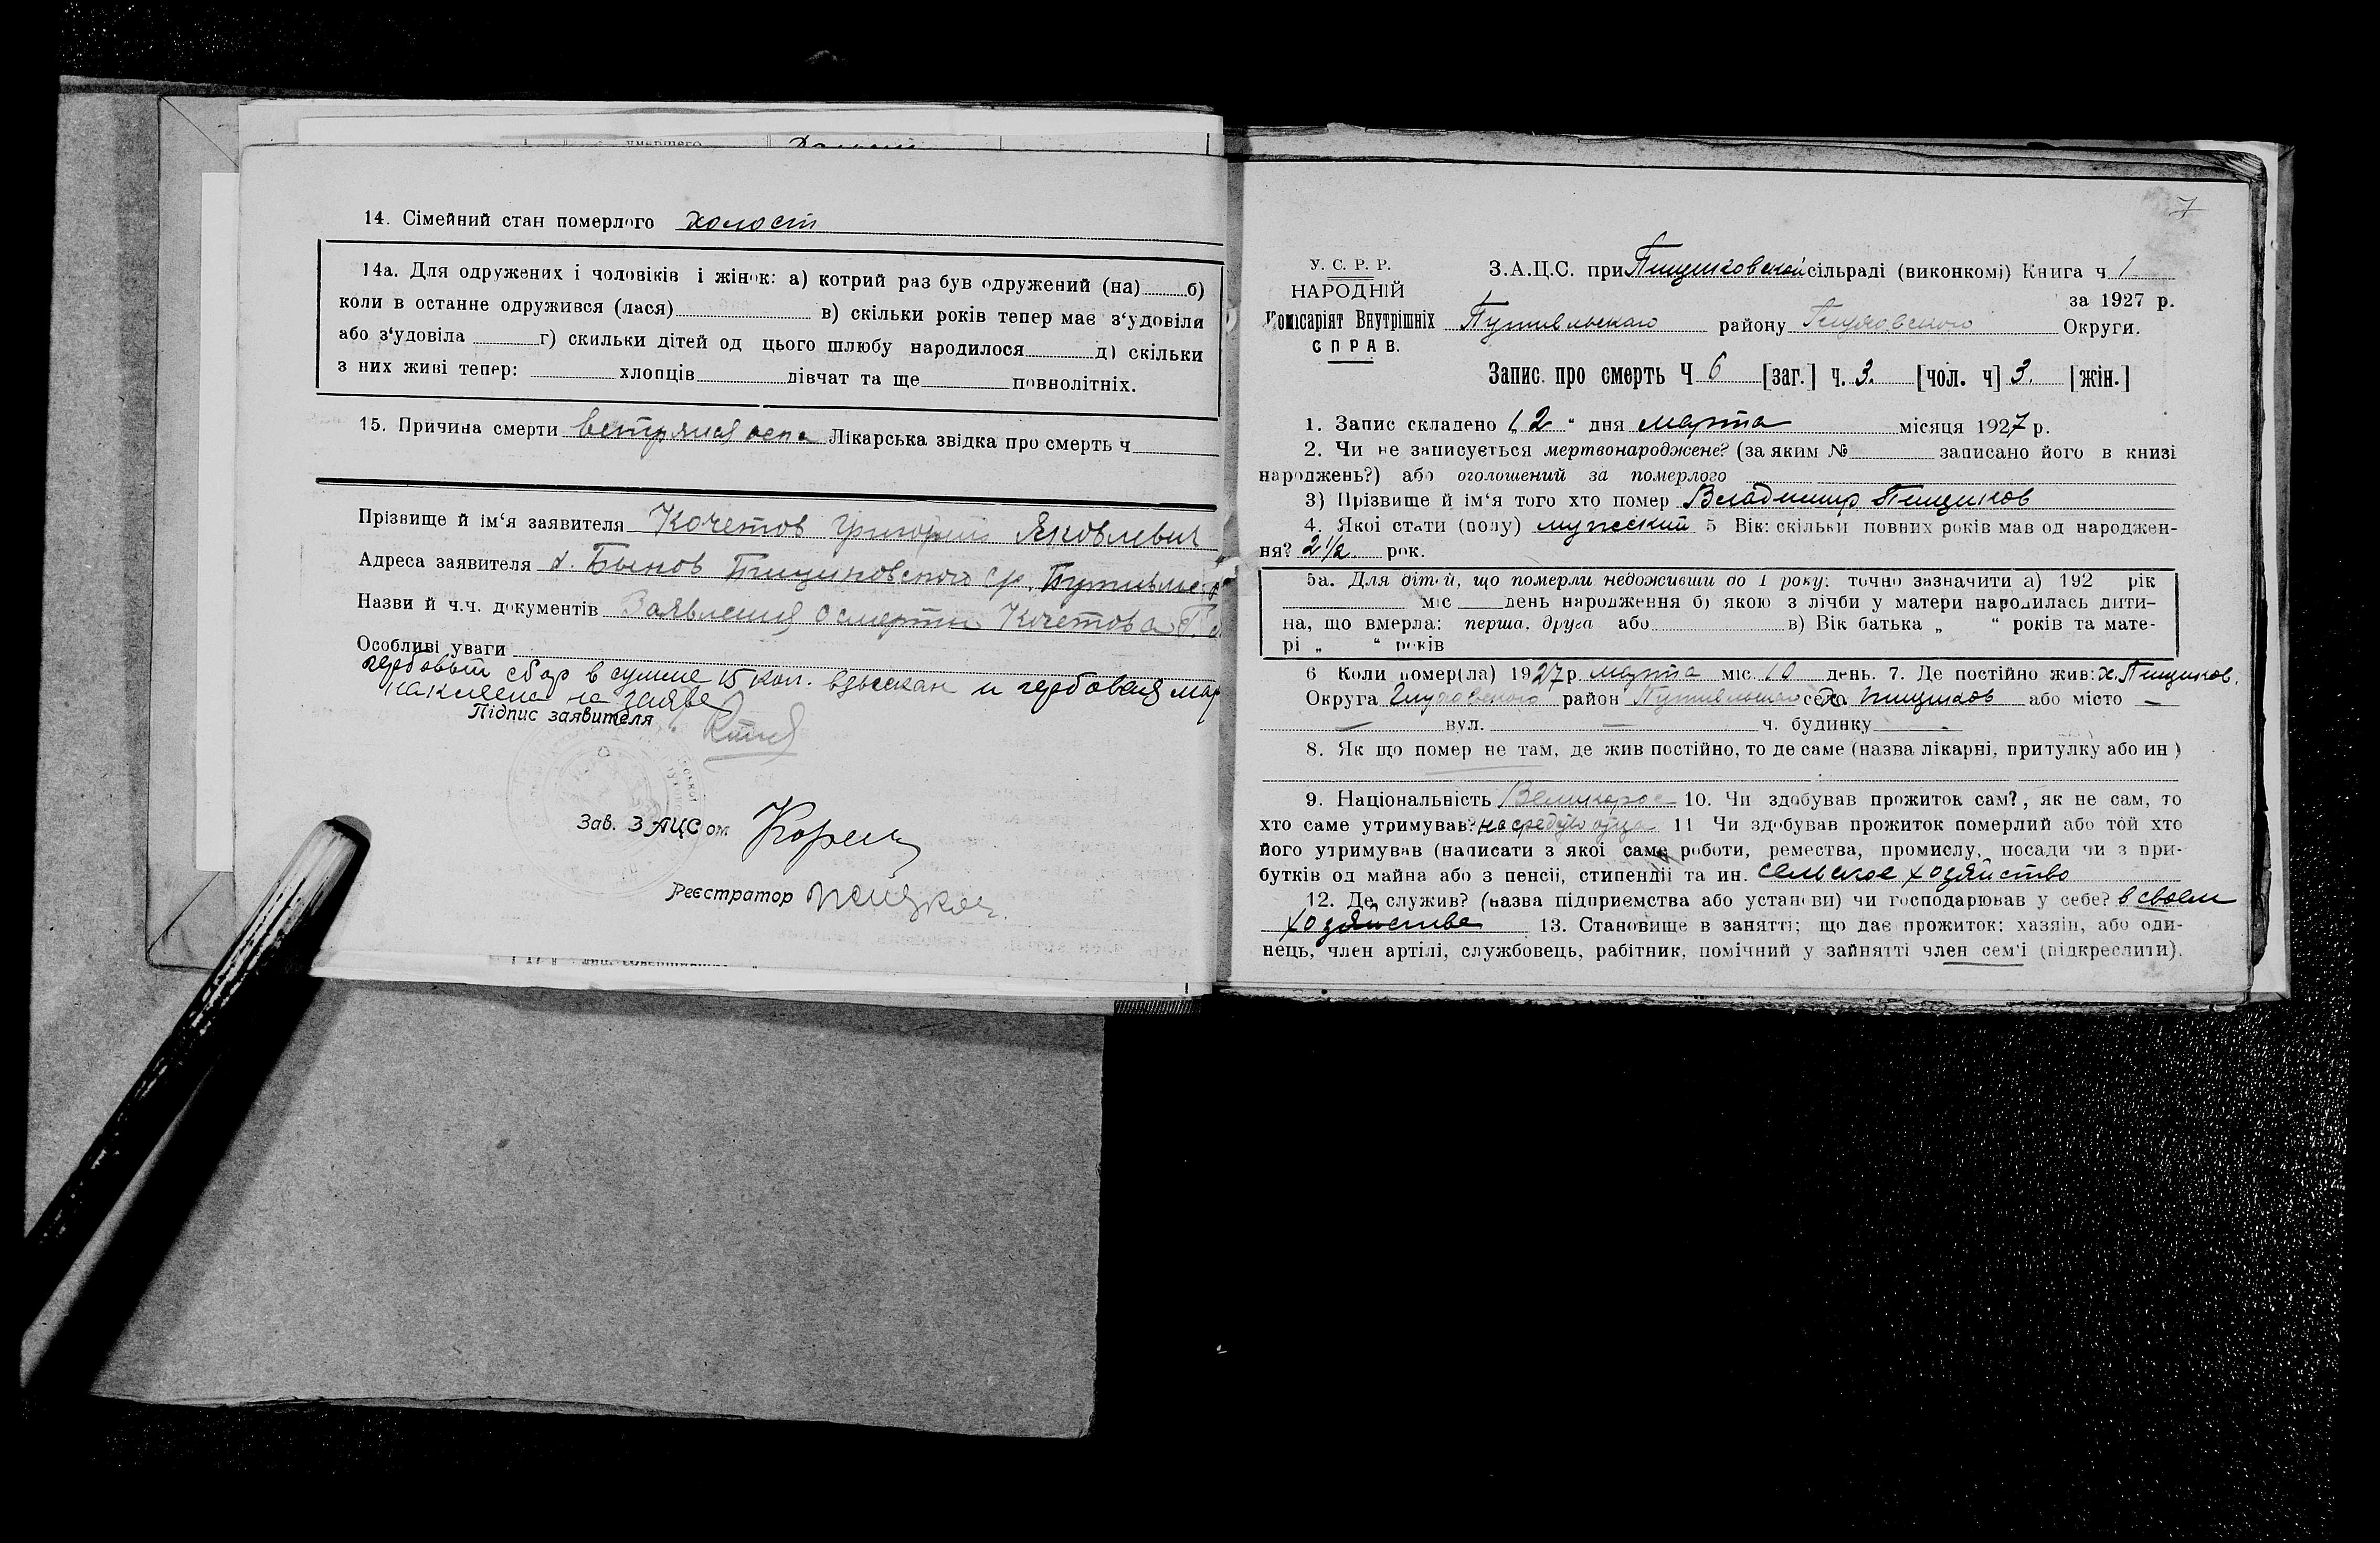 умершего
14. Сімейний стан померлого холост
14а. Для одружених і чоловіків і жінок: а) котрий раз був одружений (на) б)
коли в останне одружився (лася) в) скільки років тепер має з‘удовіли
або з‘удовіла г) скильки дітей од цього шлюбу народилося д) скільки
з них живі тепер: хлопців дівчат та ще повнолітніх.
15. Причина смерти ветряная оспа Лікарська звідка про смерть ч
Прізвище й ім‘я заявителя Кочетов Григорий Яковлевич
Адреса заявителя Пищиковского с/р.
Назви й ч.ч. документів Заявления о смерти Кочетова
Особливі уваги
гербовый сбор в сумме 15 коп. взыскан и гербовая мар
наклеена на заяве
Підпис заявителя
Зав. ЗАЦСом
Реєстратор
7
У. С. Р. Р.
НАРОДНІЙ
Комісаріят Внутрішніх
СПРАВ.
З.А.Ц.С. при Пищиковской сільраді (виконкомі) Книга ч 1
за 1927 р.
Путивльского району Глуховского Округи.
Запис про смерть Ч 6 [заг.] ч. 3. [чол. ч] 3. [жін.]
1. Запис складено 12 “ дня марта місяця 1927 р.
2. Чи не записується мертвонароджене? (за яким № записано його в книзі
народжень?) або оголошений за померлого
3) Прізвище й ім‘я того хто помер Владимир Пищиков
4. Якоі стати (полу) мужеский 5 Вік: скільки повних років мав од народжен-
ня? 2 1/2 рок.
5а. Для дітей, що померли недоживши до 1 року: точно зазначити а) 192 рік
міс день народження б) якою з лічби у матери народилась дити-
на, що вмерла: перша, друга або в) Вік батька „ “ років та мате-
рі „ “ років
6 Коли помер(ла) 1927 р. марта міс. 10 день. 7. Де постійно жив: х. Пищиков.
Округа Глуховского район Путивльского село х. Пищиков або місто —
— вул. — ч. будинку —
8. Як що помер не там, де жив постійно, то де саме (назва лікарні, притулку або ин )
9. Національність Великорос 10. Чи здобував прожиток сам?, як не сам, то
хто саме утримував? на средство отца 11 Чи здобував прожиток померлий або той хто
його утримував (написати з якоі саме роботи, ремества, промислу, посади чи з при-
бутків од майна або з пенсіі, стипендіі та ин. сельское хозяйство
12. Де служив? (назва підприемства або установи) чи господарював у себе? в своем
хозяйстве 13. Становище в занятті; що дає прожиток: хазяін, або оди-
нець, член артілі, службовець, рабітник, помічний у зайнятті член сем‘і (підкреслити).